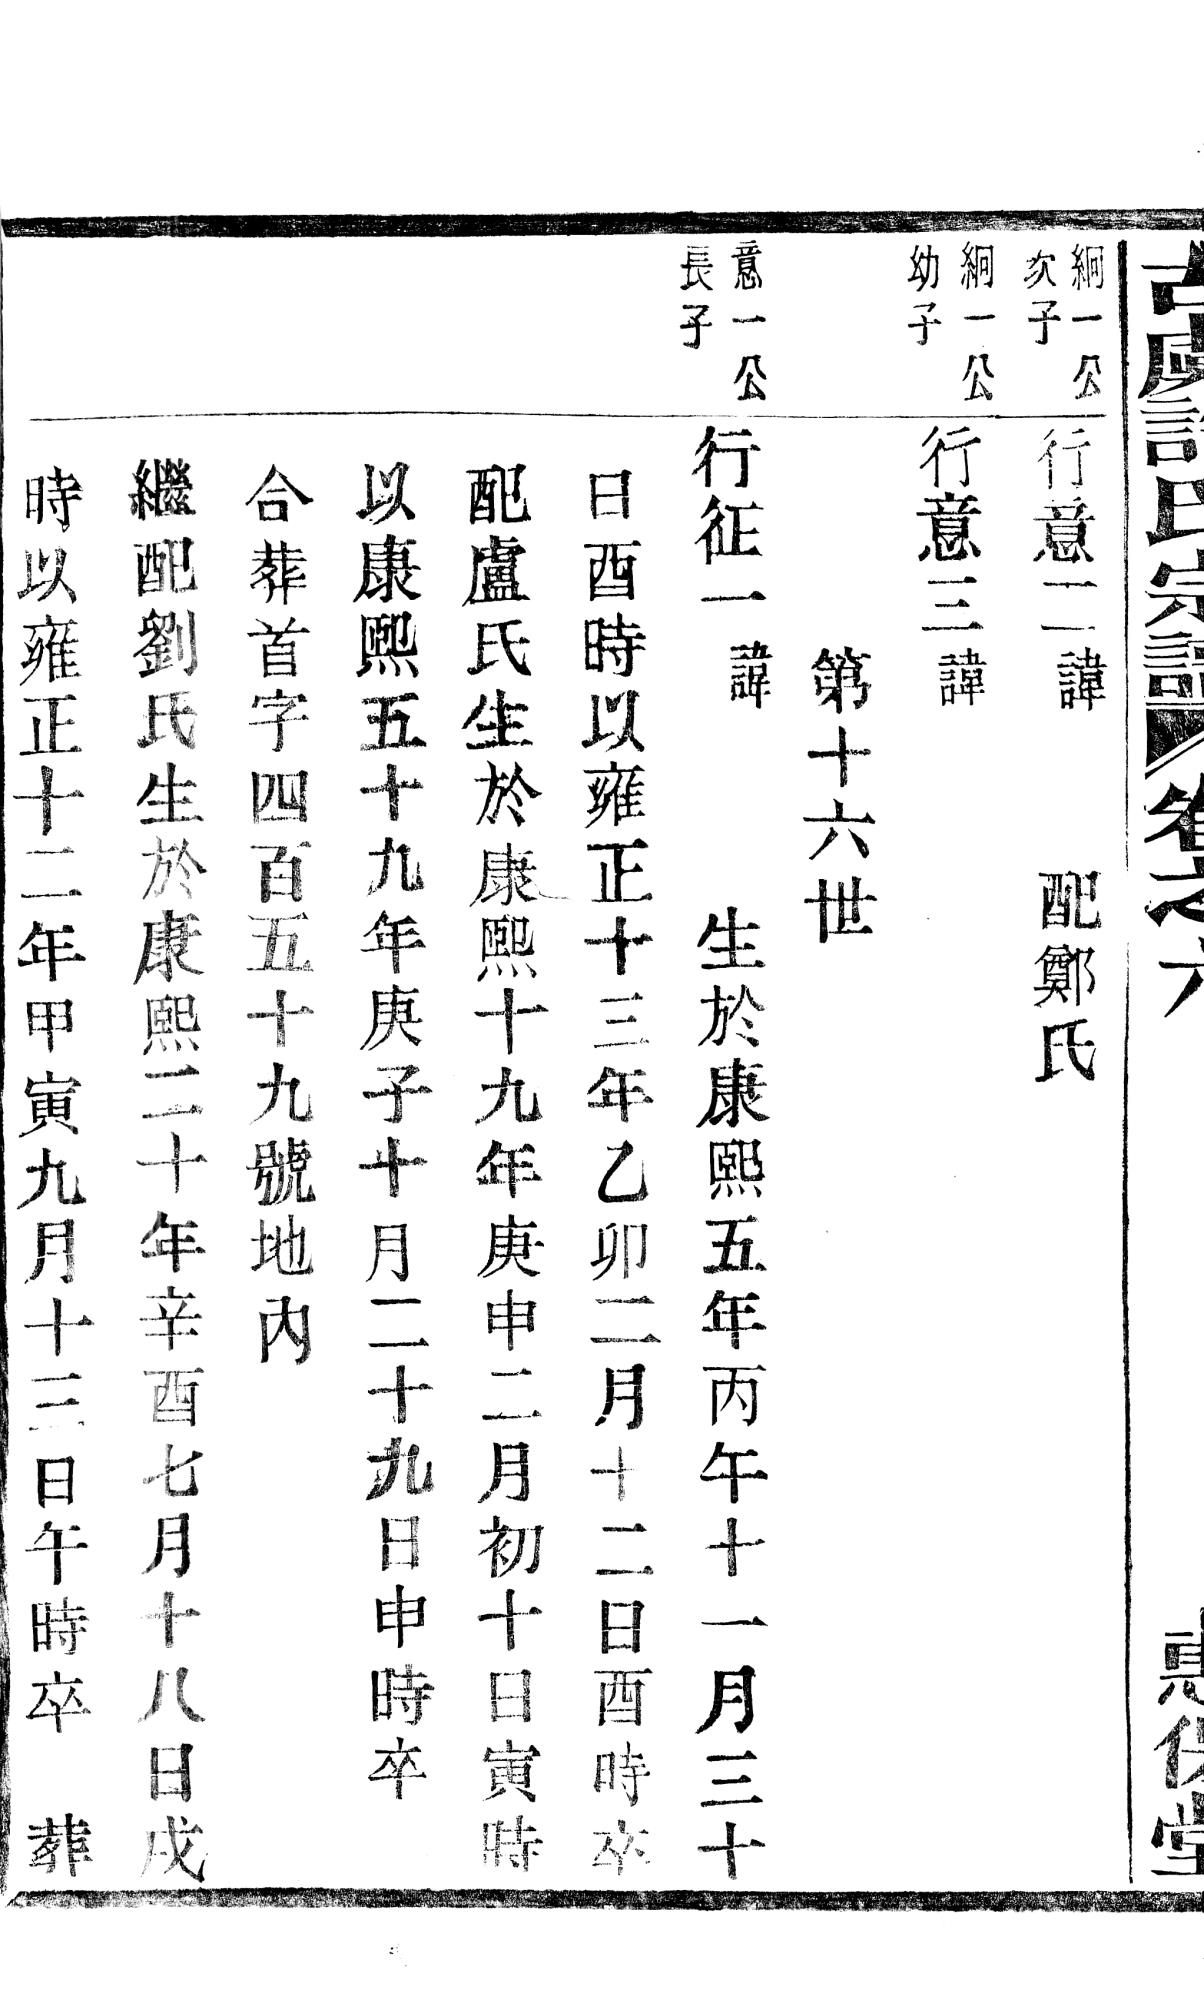 古虞許氏宗譜 卷之六 惠保堂
絅一公
次子
行意二 諱 配鄭氏
絅一公
幼子
行意三 諱
第十六世
意一公
長子
行征一 諱 生於康熙五年丙午十一月三十
日酉時以雍正十三年乙卯二月十二日酉時卒
配盧氏生於康熙十九年庚申二月初十日寅時
以康熙五十九年庚子十月二十九日申時卒
合葬首字四百五十九號地內
繼配劉氏生於康熙二十年辛酉七月十八日戌
時以雍正十二年甲寅九月十三日午時卒 葬